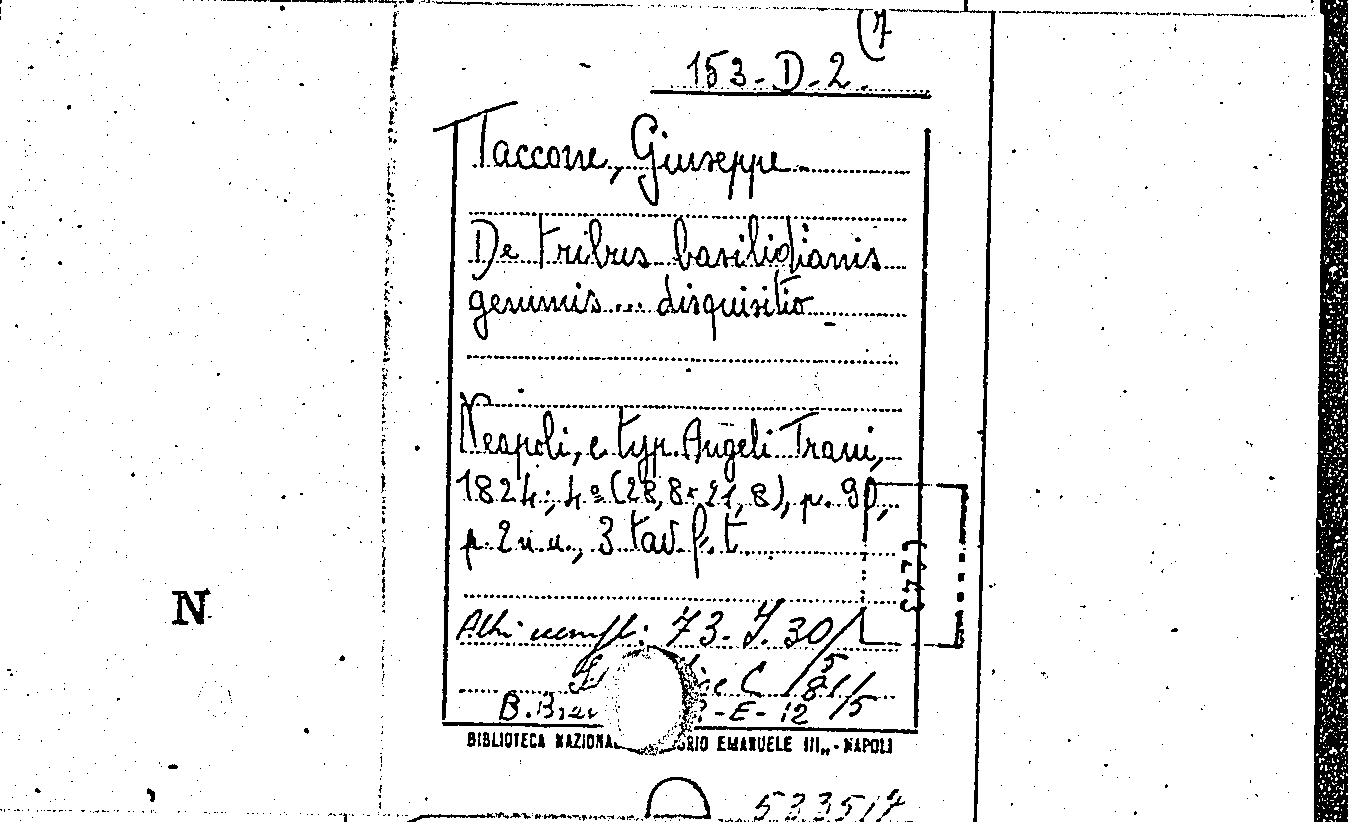 (7
153-D-2
Taccone, Giuseppe
De tribus basilidianis
gemmis... disquisitio
Neapoli, e typ. Angeli Trani,
1824; 4º (28,8x21,8), p. 90,
p. 2 n.n., 3 tav. f. t.
Altri esempl: 73. J. 30/
C /81/5
B. -E-12
N
BIBLIOTECA EMANUELE III„ - NAPOLI
533517